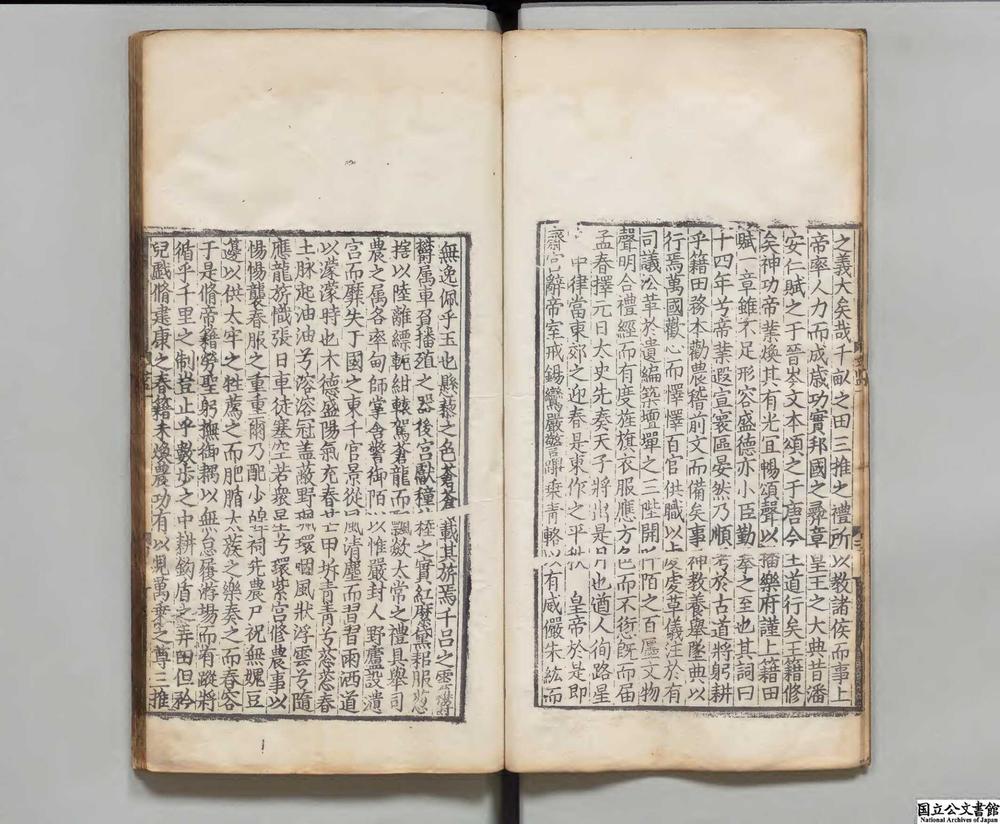 之義大矣哉千畝之田三推之禮所以教諸侯而事上
帝率人力而成歲功實邦國之彝章皇王之大典昔潘
安仁賦之于晉岑文本頌之于唐今王道行矣王籍修
矣神功帝業煥其有光宜暢頌聲以播樂府謹上籍田
賦一章雖不足形容盛德亦小臣勤拳之至也其詞曰
十四年兮帝業遐宣寰區晏然乃順考於古道將躬耕
乎籍田務本勸農稽前文而備矣事神教養舉墜典以
行焉萬國歡心而懌懌百官供職以虔虔草儀注於有
司議㳂革於遺編築壇墠之三陛開阡陌之百廛文物
聲明合禮經而有度旌旗衣服應方色而不愆既而届
孟春擇元日太史先奏天子將出是月也遒人徇路星
中律當東郊之迎春是東作之平秩 皇帝於是即
齋宮辭帝室戒錫鸞嚴警蹕乘青輅以有威儼朱紘而
無逸佩乎玉也縣藜之色蒼蒼載其旂焉千呂之雲欝
欝属車負播殖之器後宮獻穜稑之實紅縻黛耜服葱
犗以陸離縹軛紺轅駕蒼龍而飄欻太常之禮具舉司
農之属各率甸師掌舍警御陌以惟嚴封人野廬設壝
宮而靡失于國之東千官景從風清塵而習習雨洒道
以濛濛時也木德盛陽氣充春草甲坼青青兮茫茫春
土脉起油油兮溶溶冠盖蔽野珮環咽風狀浮雲兮隨
應龍旂幟張日車徒塞空若衆星兮環紫宮修農事以
惕惕襲春服之重重爾乃配少皞祠先農尸祝無媿豆
籩以供太牢之牲薦之而肥腯大蔟之樂奏之而春容
于是脩帝籍勞聖躬撫御耦以無怠履游場而有蹤將
循乎千里之制豈止乎數步之中耕鈎盾之弄田但矜
兒戲脩建康之春籍未煥農功有以見萬乘之尊三推
国立公文書館
National Archives of Japan